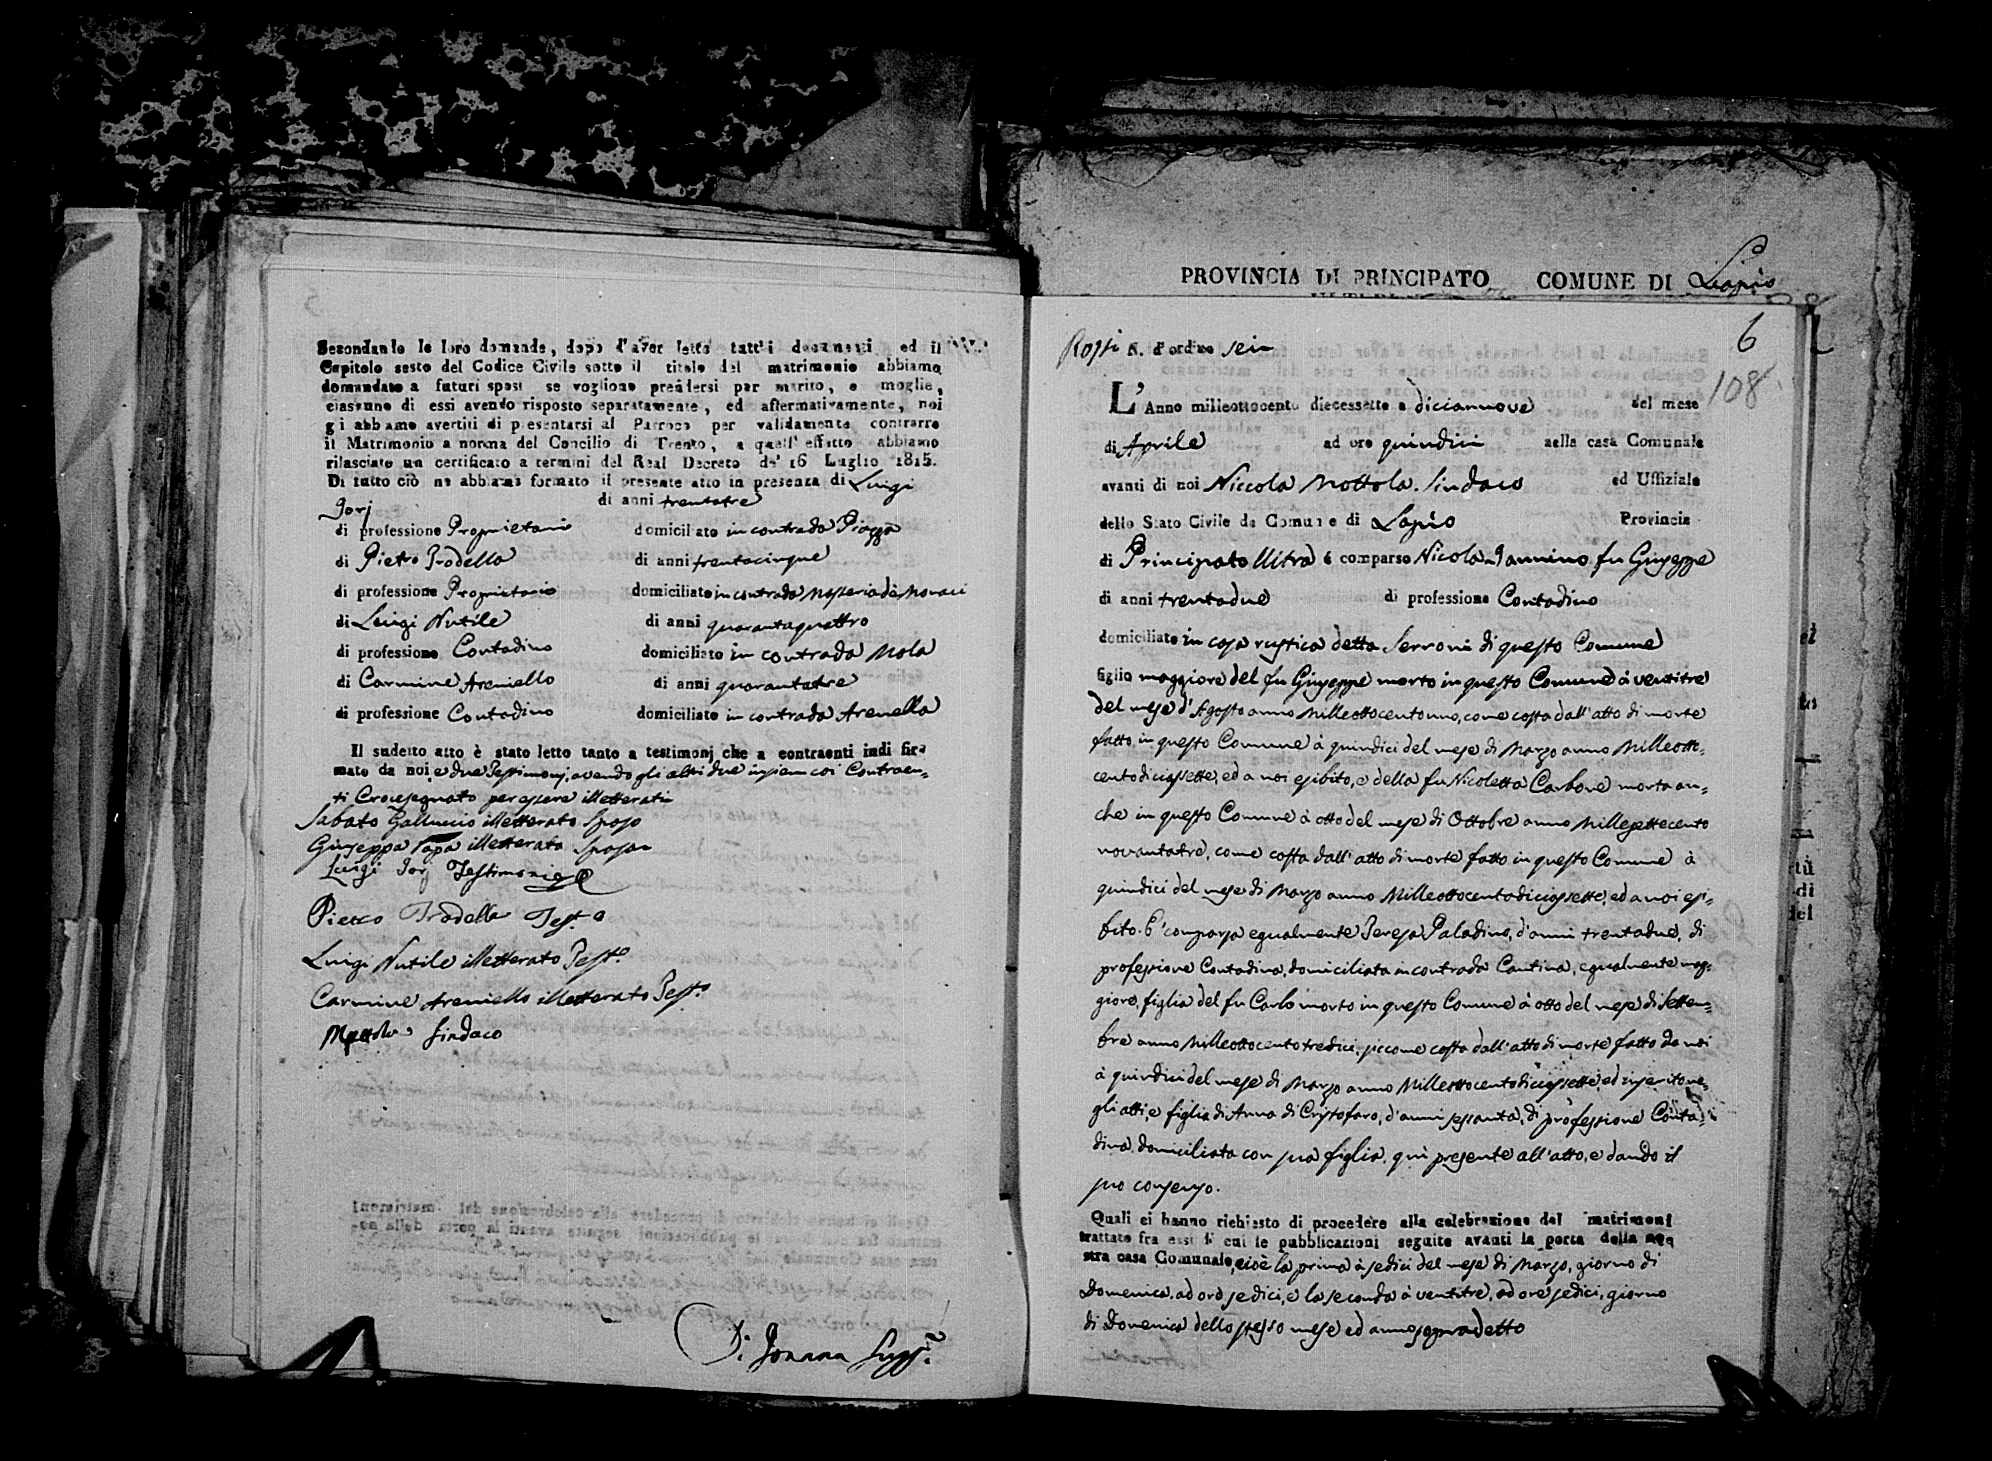 Secondando le loro domande, dopo d'aver letto tutti i documenti ed il
Capitolo sesto del Codice Civile sotto il titolo del matrimonio abbiamo
domandato a futuri sposi se vogliono prendersi per marito, e moglie,
ciascuno di essi avendo risposto separatamente, ed affermativamente, noi
gi abbiamo avertiti di presentarsi al Parroco per validamente contrarre
il Matrimonio a norma del Concilio di Trento, a quell' effetto abbiamo
rilasciato un certificato a termini del Real Decreto de' 16 Luglio 1815.
Di tutto ciò ne abbiamo formato il presente atto in presenza di Luigi
Jorj di anni trentatre
di professione Proprietario domiciliato in contrada Piazza
di Pietro Tradella di anni trentacinque
di professione Proprietario domiciliato in contrada Masseria de Monaci
di Luigi Nutile di anni quarantaquattro
di professione Contadino domiciliato in contrada Mola
di Carmine Areniello di anni quarantatre
di professione Contadino domiciliato in contrada Arenella
Il sudetto atto è stato letto tanto a testimonj che a contraenti indi fir-
mato da noi, e due Testimonj, avendo gli altri due insiem coi Contraen-
ti Crocesegnato per essere illetterati
Sabato Galluccio illetterato Sposo
Giuseppa Papa illetterata Sposa
Luigi Jorj Testimonio
Pietro Tradella Test.o
Luigi Nutile illetterato Test.o
Carmine Areniello illetterato Test.o
Mottola Sindaco
PROVINCIA DI PRINCIPATO COMUNE DI Lapio
6
N. d'ordine sei
108
L'Anno milleottocento diecessette a diciannove del mese
di Aprile ad ore quindici nella casa Comunale
avanti di noi Niccola Mottola Sindaco ed Uffiziale
dello Stato Civile de Comune di Lapio Provincia
di Principato Ultra è comparso Nicola Jannino fu Giuseppe
di anni trentadue di professione Contadino
domiciliato in casa rustica detta Serroni di questo Comune
figlio maggiore del fu Giuseppe morto in questo Comune à ventitre
del mese d'Agosto anno Milleottocentouno, come costa dall'atto di morte
fatto in questo Comune à quindici del mese di Marzo anno Milleotto-
centodiciassette, ed a noi esibito, e della fu Nicoletta Carbone morta an-
che in questo Comune à otto del mese di Ottobre anno Millesettecento
novantatre, come costa dall'atto di morte fatto in questo Comune à
quindici del mese di Marzo anno Milleottocentodiciassette, ed a noi esi-
bito. E' comparsa egualmente Teresa Paladino, d'anni trentadue, di
professione Contadina, domiciliata in contrada Cantina, egualmente mag-
giore, figlia del fu Carlo morto in questo Comune à otto del mese di Settem-
bre anno Milleottocentotredici, siccome costa dall'atto di morte fatto da noi
à quindici del mese di Marzo anno Milleottocentodiciassette, ed inserito ne-
gli atti, e figlia di Anna di Cristofaro, d'anni sessanta, di professione Conta-
dina, domiciliata con sua figlia, qui presente all'atto, e dando il
suo consenso.
Quali ci hanno richiesto di procedere alla celebrazione del matrimoni
trattato fra essi di cui le pubblicazioni seguite avanti la porta della no-
stra casa Comunale, cioè la prima à sedici del mese di Marzo, giorno di
Domenica, ad ore sedici, e la seconda à ventitre, ad ore sedici, giorno
di Domenica dello stesso mese ed anno sopradetto